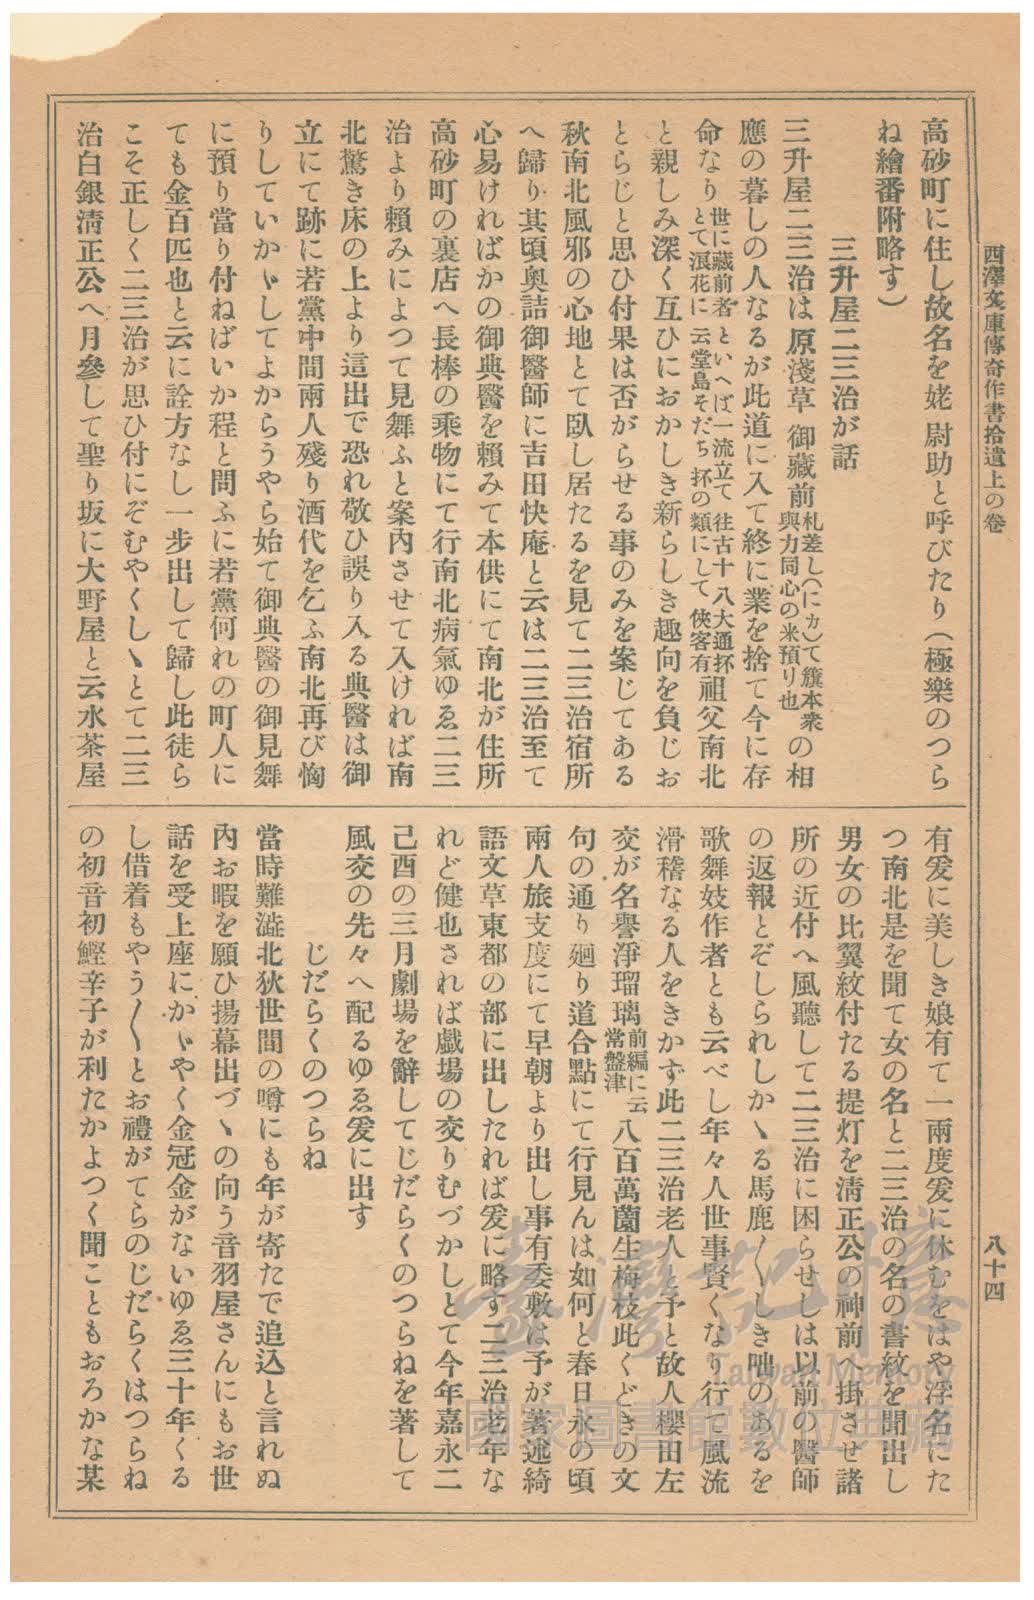 西澤文庫傳奇作書拾遺上の卷
八十四
高砂町に住し故名を姥尉助と呼びたり（極樂のつら
ね繪番附略す）
三升屋二三治が話
三升屋二三治は原淺草御藏前札差し（にカ）て簱本衆與力同心の米預リ也の相
應の暮しの人なるが此道に入て終に業を捨て今に存
命なり世に藏前者といへば一流立て往古十八大通抔とて浪花に云堂島そだち抔の類にして俠客有祖父南北
と親しみ深く互ひにおかしき新らしき趣向を負じお
とらじと思ひ付果は否がらせる事のみを案じてある
秋南北風邪の心地とて臥し居たるを見て二三治宿所
へ歸り其頃奥詰御醫師に吉田快庵と云は二三治至て
心易ければかの御典醫を賴みて本供にて南北が住所
高砂町の裏店へ長棒の乘物にて行南北病氣ゆゑ二三
治より賴みによつて見舞ふと案内させて入ければ南
北驚き床の上より這出で恐れ敬ひ誤り入る典醫は御
立にて跡に若黨中間兩人殘り酒代を乞ふ南北再び惱
りしていかゞしてよからうやら始て御典醫の御見舞
に預り當り付ねばいか程と問ふに若黨何れの町人に
ても金百匹也と云に詮方なし一步出して歸し此徒ら
こそ正しく二三治が思ひ付にぞむやくしゝとて二三
治白銀淸正公へ月參して聖り坂に大野屋と云水茶屋
有爰に美しき娘有て一兩度爰に休むをはや浮名にた
つ南北是を聞て女の名と二三治の名の書紋を聞出し
男女の比翼紋付たる提灯を淸正公の神前へ掛させ諸
所の近付へ風聽して二三治に困らせしは以前の醫師
の返報とぞしられしかゝる馬鹿〱しき咄のあるを
歌舞妓作者とも云べし年々人世事賢くなり行て風流
滑稽なる人をきかず此二三治老人と予と故人櫻田左
交が名譽淨瑠璃前編に云常盤津八百萬薗生梅枝此くどきの文
句の通り廻り道合點にて行見んは如何と春日永の頃
兩人旅支度にて早朝より出し事有委敷は予が著述綺
語文草東都の部に出したれば爰に略す二三治老年な
れど健也されば戲場の交りむづかしとて今年嘉永二
己酉の三月劇場を辭してじだらくのつらねを著して
風交の先々へ配るゆゑ爰に出す
じだらくのつらね
當時難澁北狄世間の噂にも年が寄たで追込と言れぬ
内お暇を願ひ揚幕出づゝの向う音羽屋さんにもお世
話を受上座にかゞやく金冠金がないゆゑ三十年くる
し借着もやう〱とお禮がてらのじだらくはつらね
の初音初鰹辛子が利たかよつく聞こともおろかな某
臺灣記憶
Taiwan Memory
國家圖書館數位典藏